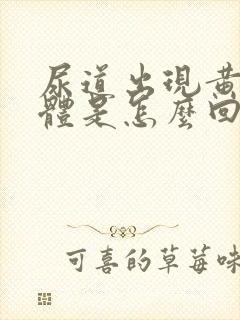 尿道出現黃
體是怎麼回
可喜的草莓味